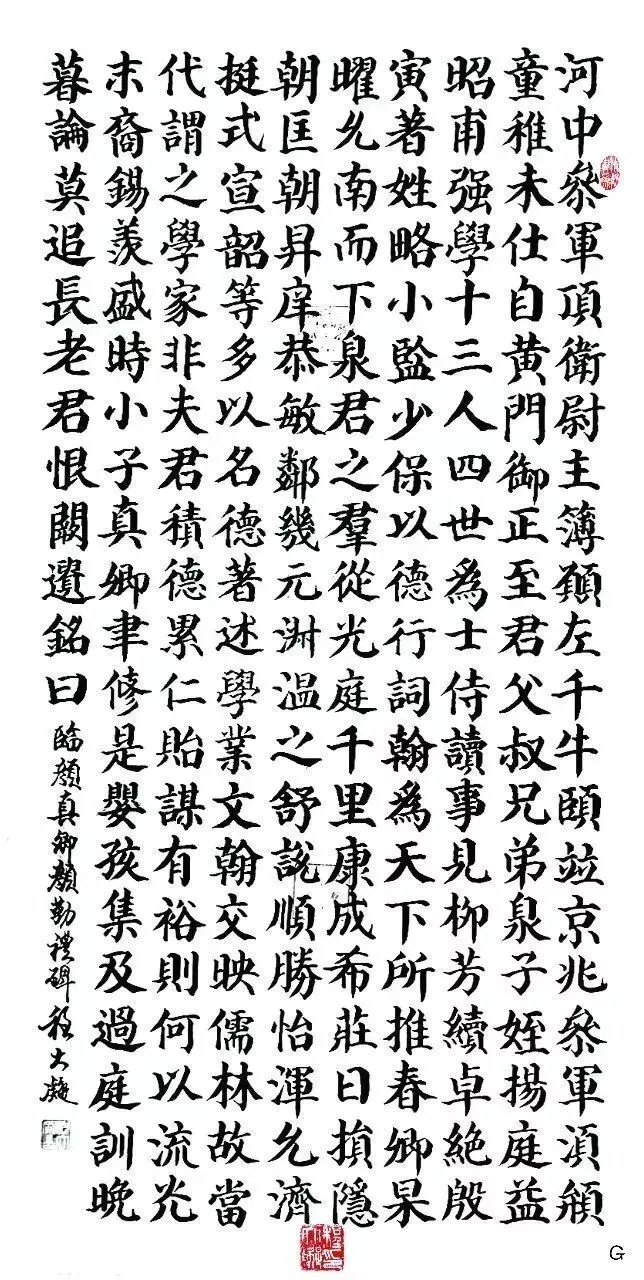 河中叅軍頂衛尉主簿願左千牛頤竝京兆叅軍湏頯
童稚未仕自黄門御正至君父叔兄弟泉子姪揚庭益
昭甫强學十三人四世為士侍讀事見柳芳續卓絶殷
寅著姓略小監少保以德行詞翰為天下所推春卿杲
曜允南而下泉君之羣從光庭千里康成希莊日損隱
朝匡朝昇庠恭敏鄰幾元淵温之舒說順勝怡渾允濟
挺式宣韶等多以名德著述學業文翰交映儒林故當
代謂之學家非夫君積德累仁貽謀有裕則何以流光
末裔錫羨盛時小子真卿聿修是嬰孩集及過庭訓晚
暮論莫追長老君恨闕遺銘曰
臨顔真卿顔勤禮碑 程大凝
G